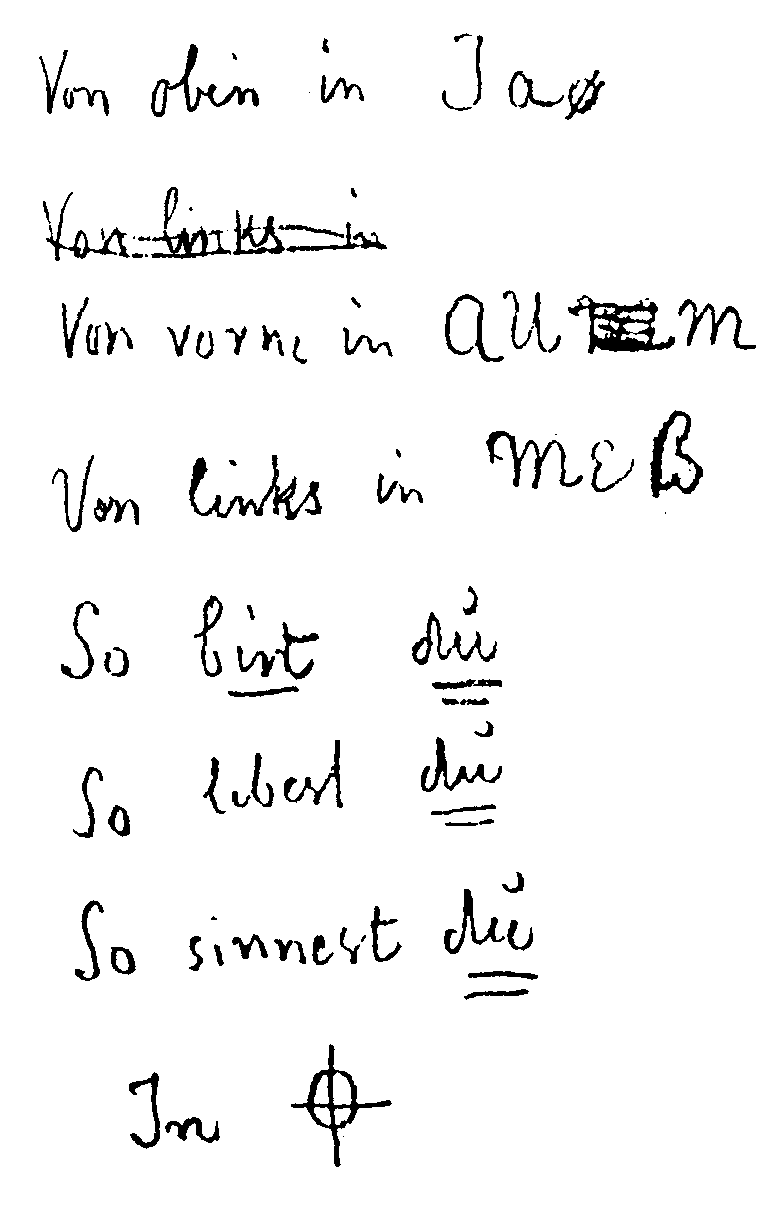 Von oben in Ja
Von links in
Von vorne in AU M
Von links in MEB
So bist du
So lebest du
So sinnest du
In